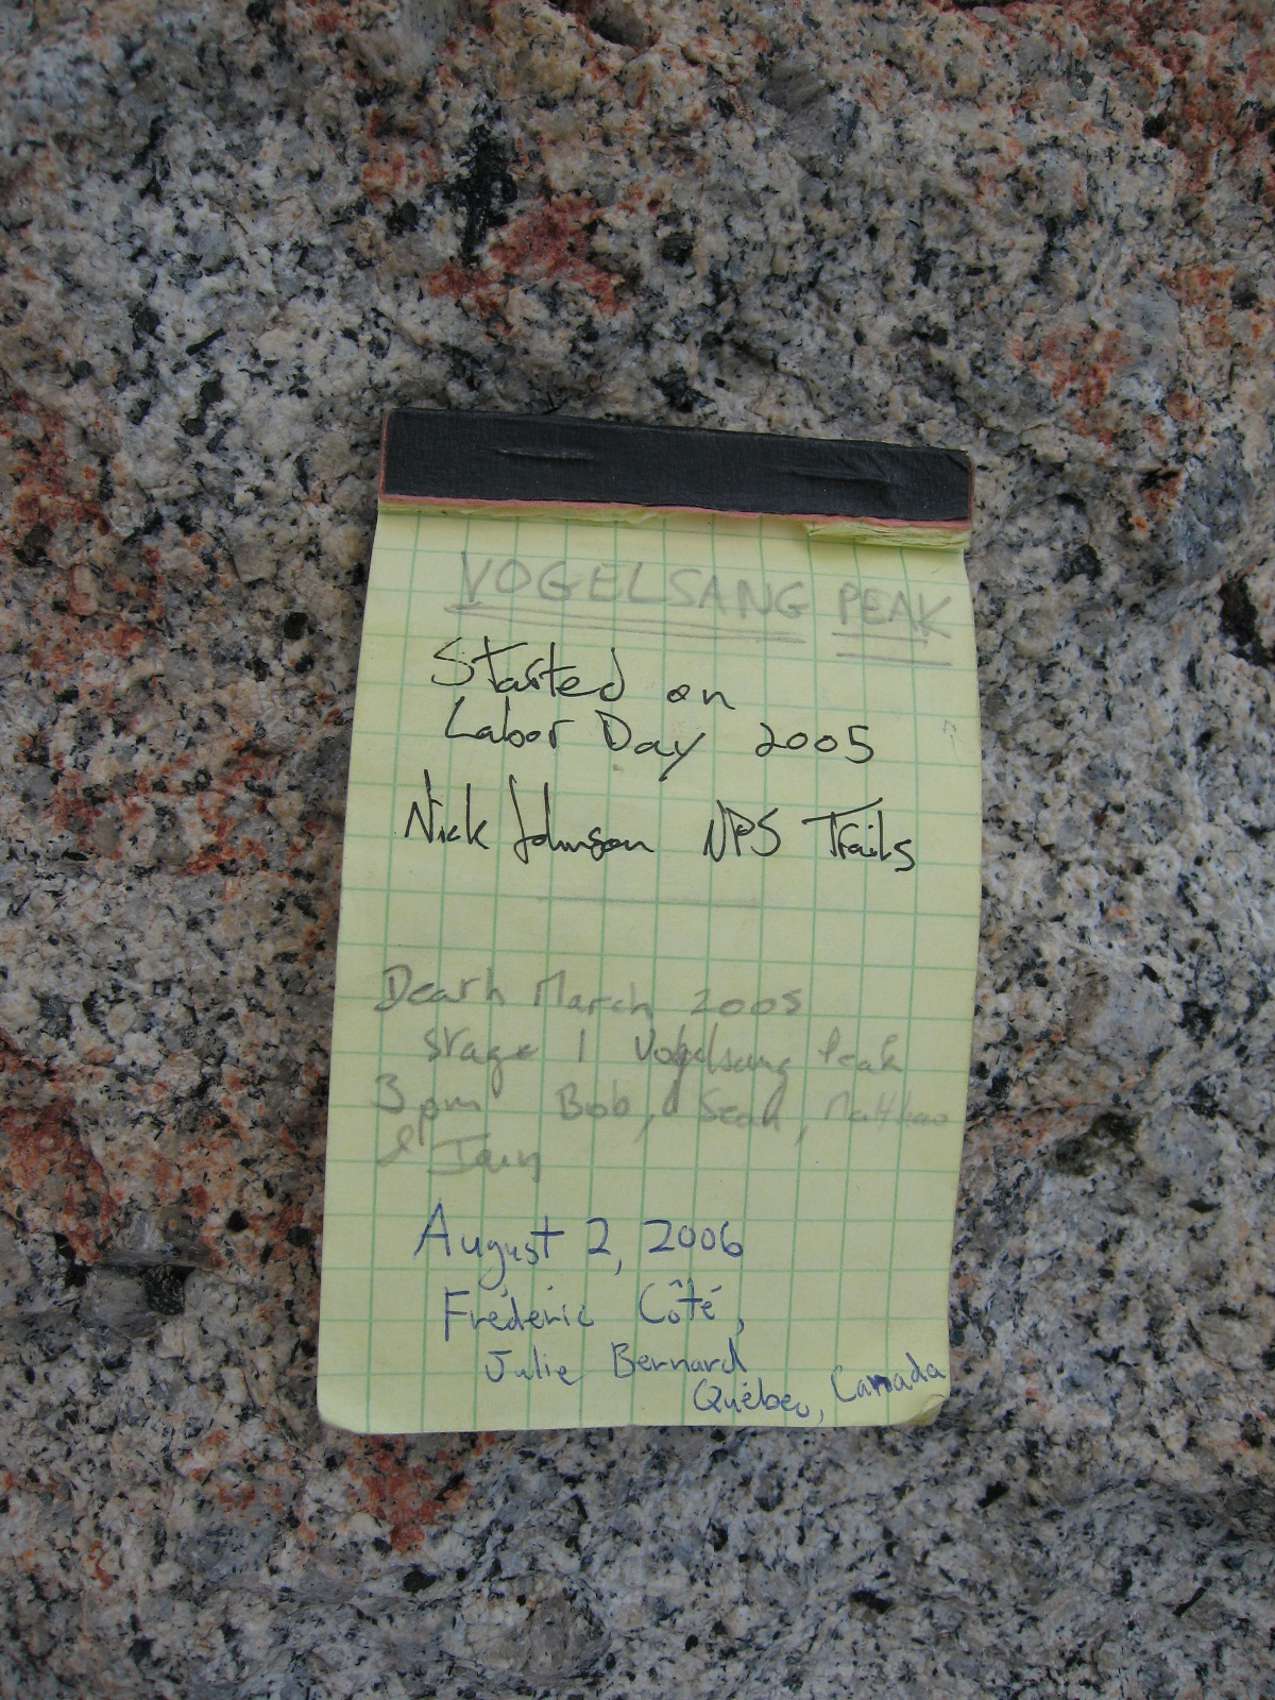 VOGELSANG PEAK
Started on
Labor Day 2005
Nick Johnson NPS Trails
Death March 2005
stage 1 Vogelsang Peak
3 pm Bob, Sean, Matthew
& Iain
August 2, 2006
Fréderic Côté,
Julie Bernard
Québec, Canada